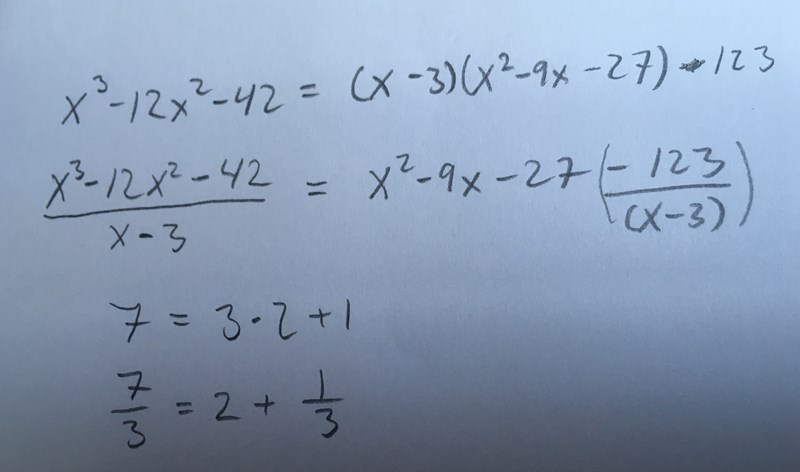 x³-12x²-42 = (x-3)(x²-9x-27) - 123
\frac{x³-12x²-42}{x-3} = x²-9x-27 (\frac{-123}{(x-3)})
7 = 3·2+1
\frac{7}{3} = 2 + \frac{1}{3}